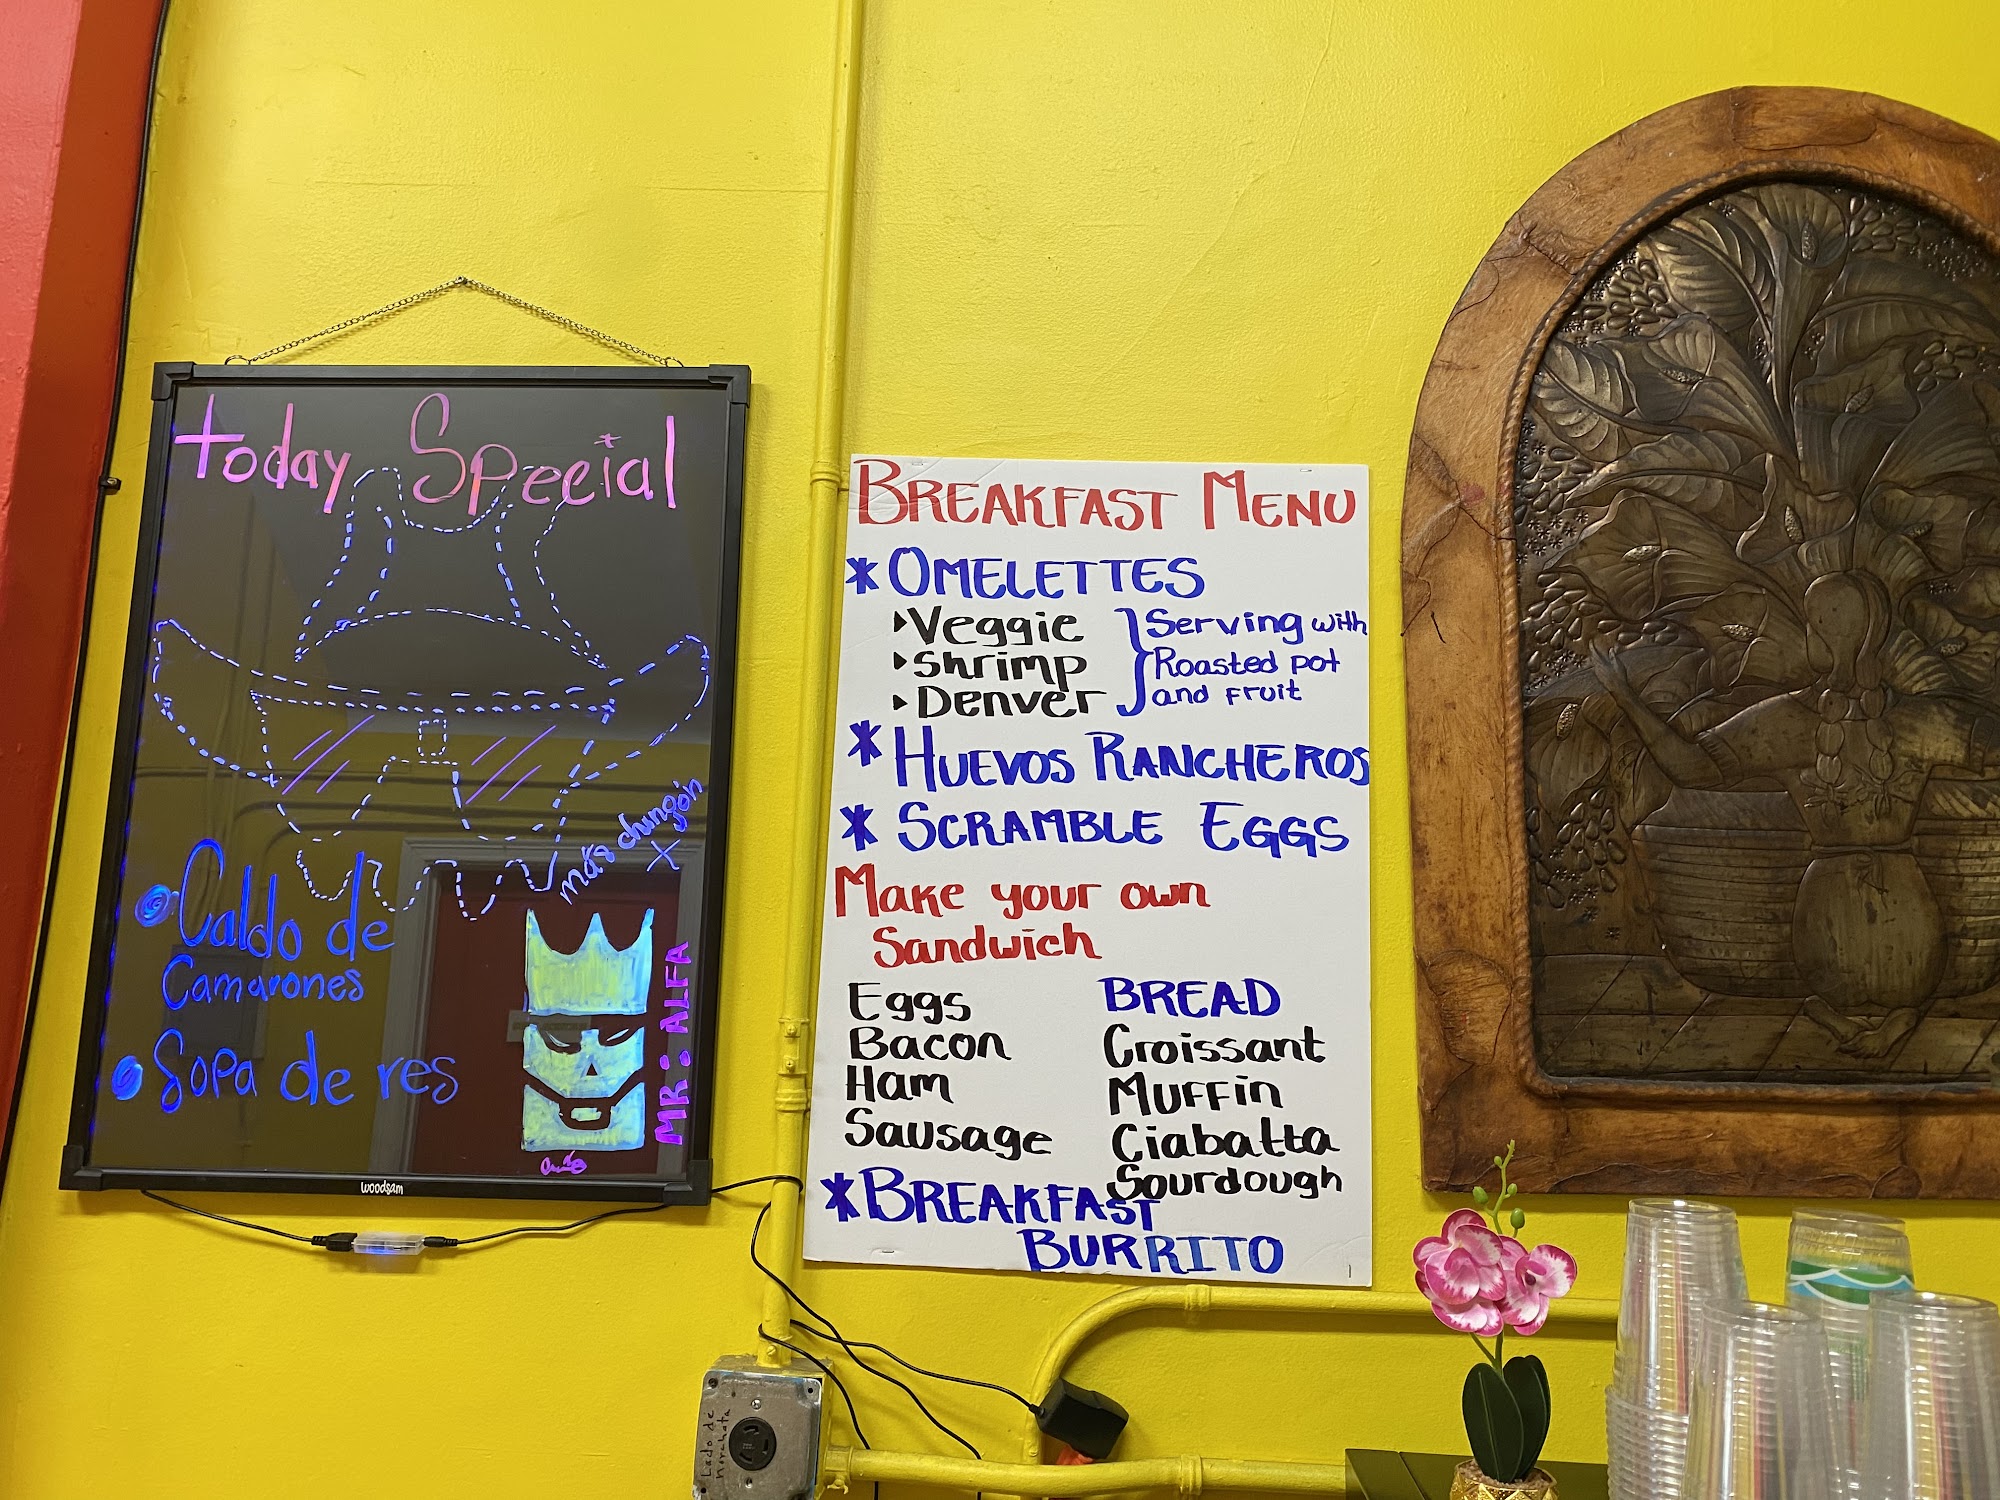 today Special
más chingón
x
Caldo de
Camarones
Sopa de res
MR: ALFA
woodsam
BREAKFAST MENU
* OMELETTES
Veggie
Shrimp
Denver
Serving with
Roasted pot
and fruit
* HUEVOS RANCHEROS
* SCRAMBLE EGGS
Make your own
Sandwich
Eggs
Bacon
Ham
Sausage
BREAD
Croissant
Muffin
Ciabatta
Sourdough
* BREAKFAST
BURRITO
Lado de
horchata